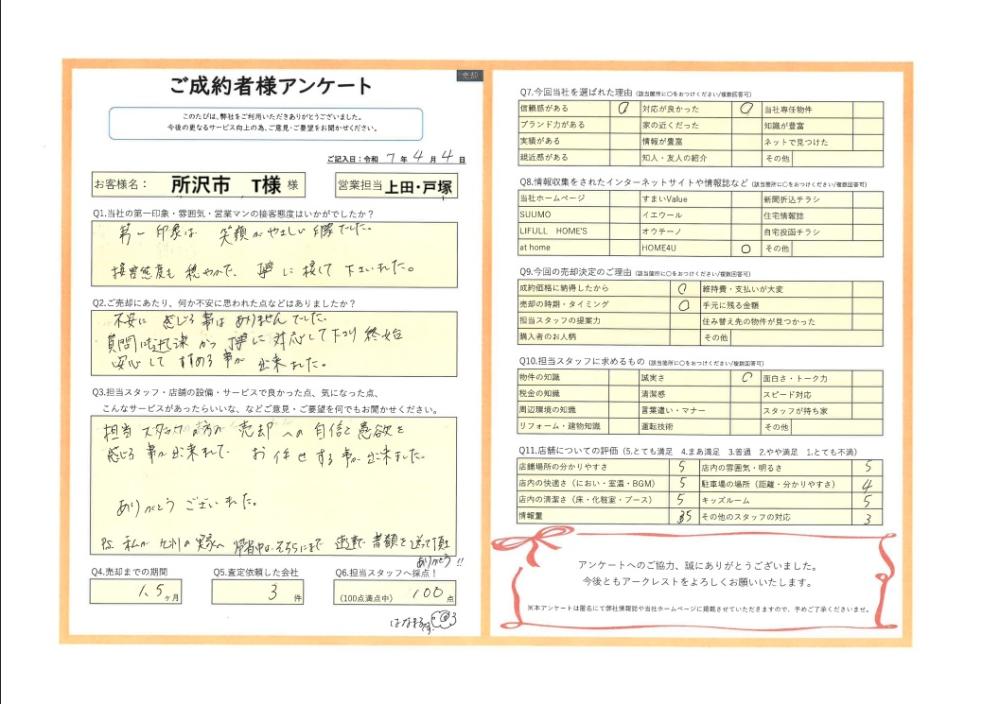 売却
ご成約者様アンケート
このたびは、弊社をご利用いただきありがとうございました。
今後の更なるサービス向上の為、ご意見・ご要望をお聞かせください。
ご記入日：令和 7 年 4 月 4 日
お客様名： 所沢市 T様 様
営業担当 上田・戸塚
Q1.当社の第一印象・雰囲気・営業マンの接客態度はいかがでしたか？
第一印象は 笑顔がやさしい印象でした。
接客態度も 穏やかで、丁寧に接して下さいました。
Q2.ご売却にあたり、何か不安に思われた点などはありましたか？
不安に感じる事はありませんでした。
質問にも迅速かつ丁寧に対応して下さり 終始
安心して すすめる事が 出来ました。
Q3.担当スタッフ・店舗の設備・サービスで良かった点、気になった点、
こんなサービスがあったらいいな、などご意見・ご要望を何でもお聞かせください。
担当 スタッフの方の 売却への自信と意欲を
感じる事が出来まして お任せする事が出来ました。
ありがとう ございました。
私が 九州の実家へ 帰省中は そちらにまで 書類を送って頂き
ありがとう!!
Q4.売却までの期間
1.5ヶ月
Q5.査定依頼した会社
3 件
Q6.担当スタッフへ採点！
(100点満点中) 100 点
はなまる
Q7.今回当社を選ばれた理由（該当箇所に○をおつけください/複数回答可）
信頼感がある ○ 対応が良かった ○ 当社専任物件
ブランド力がある 家の近くだった 知識が豊富
実績がある 情報が豊富 ネットで見つけた
親近感がある 知人・友人の紹介 その他
Q8.情報収集をされたインターネットサイトや情報誌など（該当箇所に○をおつけください/複数回答可）
当社ホームページ すまいValue 新聞折込チラシ
SUUMO イエウール 住宅情報誌
LIFULL HOME'S オウチーノ 自宅投函チラシ
at home HOME4U ○ その他
Q9.今回の売却決定のご理由（該当箇所に○をおつけください/複数回答可）
成約価格に納得したから ○ 維持費・支払いが大変
売却の時期・タイミング ○ 手元に残る金額
担当スタッフの提案力 住み替え先の物件が見つかった
購入者のお人柄 その他
Q10.担当スタッフに求めるもの（該当箇所に○をおつけください/複数回答可）
物件の知識 誠実さ ○ 面白さ・トーク力
税金の知識 清潔感 スピード対応
周辺環境の知識 言葉遣い・マナー スタッフが持ち家
リフォーム・建物知識 運転技術 その他
Q11.店舗についての評価（5.とても満足 4.まあ満足 3.普通 2.やや満足 1.とても不満）
店舗場所の分かりやすさ 5 店内の雰囲気・明るさ 5
店内の快適さ（におい・室温・BGM） 5 駐車場の場所（距離・分かりやすさ） 4
店内の清潔さ（床・化粧室・ブース） 5 キッズルーム 5
情報量 5 その他のスタッフの対応 3
アンケートへのご協力、誠にありがとうございました。
今後ともアークレストをよろしくお願いいたします。
※本アンケートは匿名にて弊社情報誌や当社ホームページに掲載させていただきますので、予めご了承くださいませ。